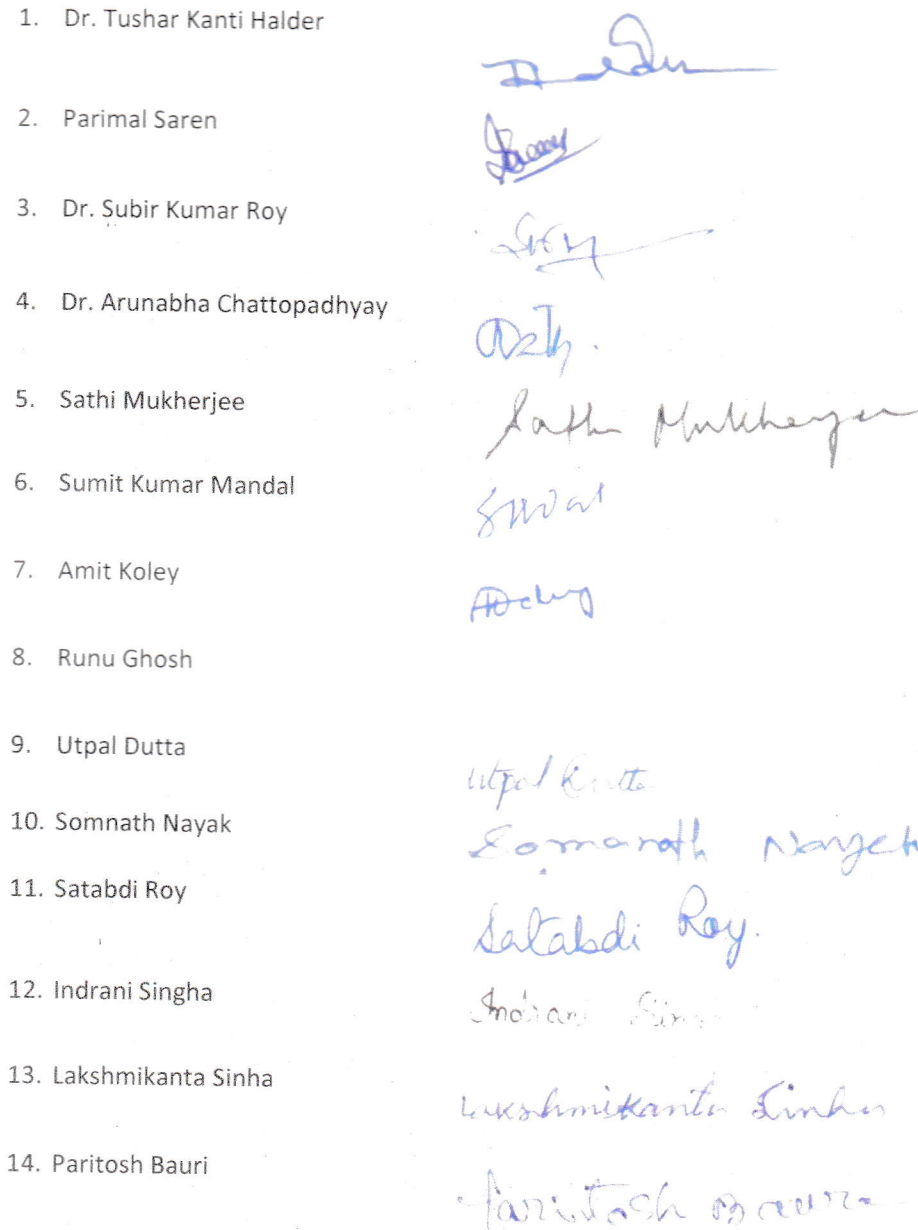 1. Dr. Tushar Kanti Halder
2. Parimal Saren
3. Dr. Subir Kumar Roy
4. Dr. Arunabha Chattopadhyay
5. Sathi Mukherjee Sathi Mukherjee
6. Sumit Kumar Mandal
7. Amit Koley
8. Runu Ghosh
9. Utpal Dutta
Utpal Dutta
10. Somnath Nayak
Somnath Nayak
11. Satabdi Roy
Satabdi Roy.
12. Indrani Singha
Indrani
13. Lakshmikanta Sinha
Lakshmikanta Sinha
14. Paritosh Bauri
Paritosh Bauri